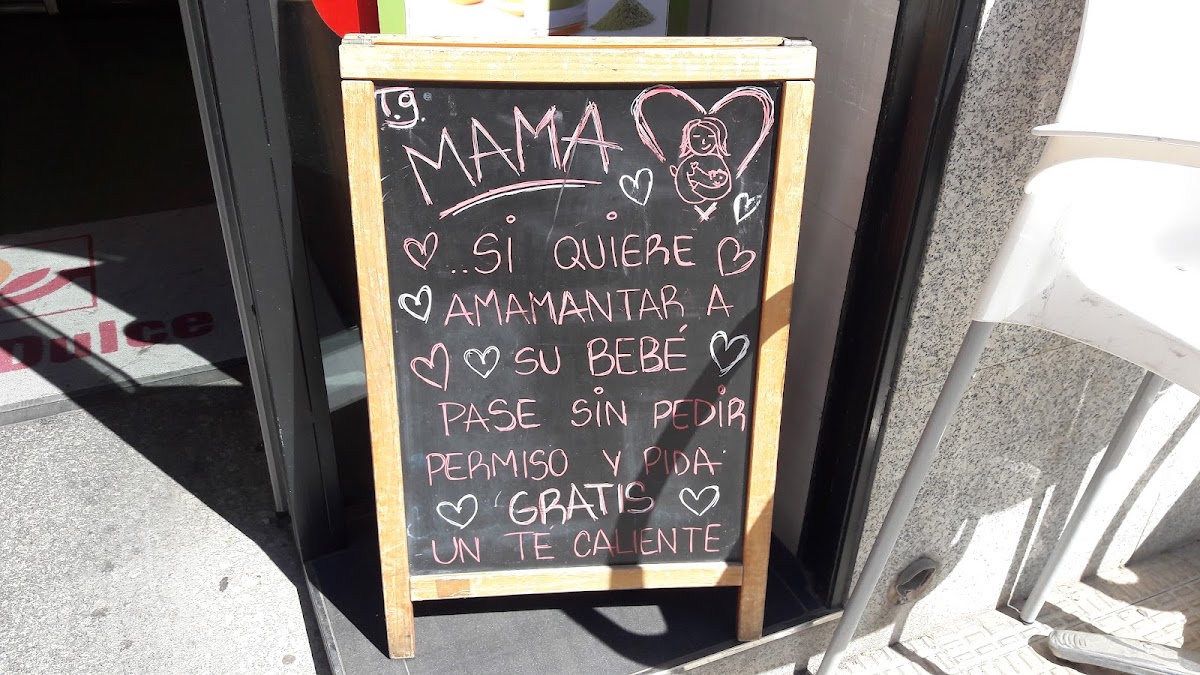 Tg.
MAMA
..Si QUIERE
AMAMANTAR A
SU BEBÉ
PASE SiN PEDiR
PERMISO Y PIDA
GRATIS
UN TE CALIENTE
Dulce